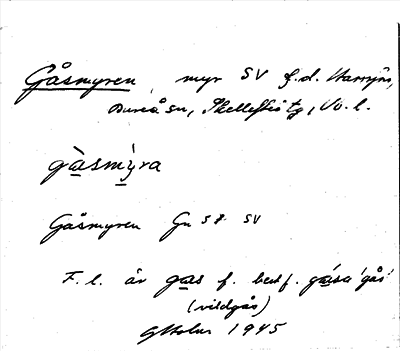 Gåsmyren, myr SV f.d.
Bureå sn, Skellefteå tg, Vb. l.
gàsmỳra
Gåsmyren Gn 58 SV
F. l. är gas f. best f. gása 'gås'
(vildgås)
GHolm 1945